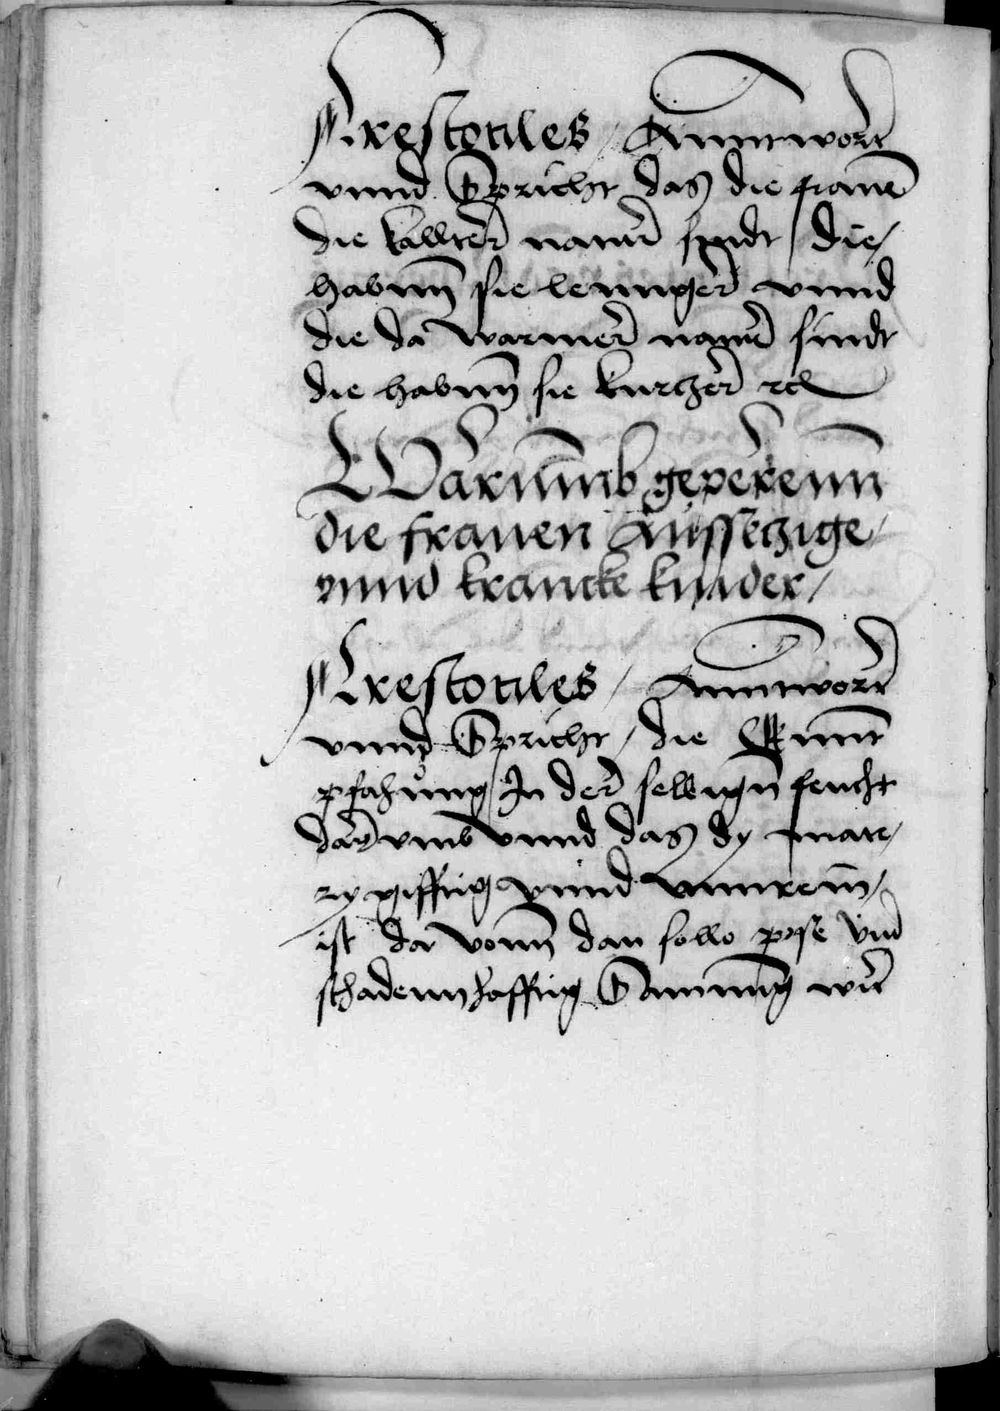 Arestotiles / Anntwortt
vnnd Spricht das die frauen
die kallter natur sindt / die /
habnn sie lennger vnnd
die da warmer natur sindt
die habnn sie kurtzer etc
Warumb geperenn
die frauen Aussetzige /
vnnd krancke kinder /
Arestotiles / Anntwortt
vnnd Spricht / die Emnt
pfahung In der selbigen feucht
darvmb vnnd das dy mate /
ry gifftig vnnd vnnrein /
ist da vonn dan sollo pose vnd
schadennhafftig Samnung wirt